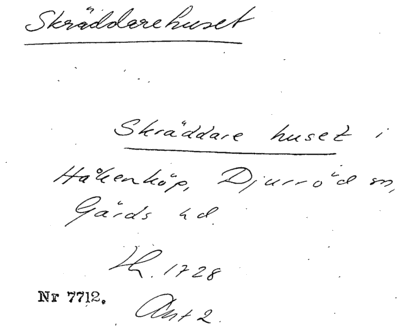 Skräddarehuset
Skräddare huset i
Håkenköp, Djurröd sn,
Gärds hd.
1728
Nr 7712.
Ant 2.